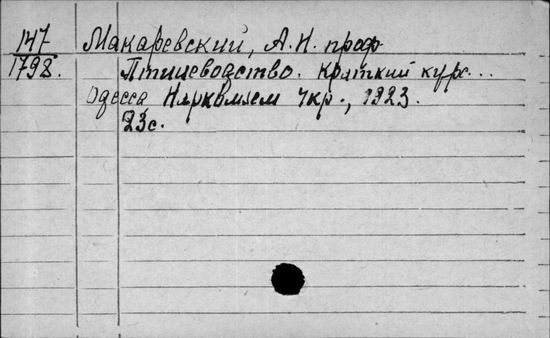 147
1798.
Макаревский, А.Н. проф.
Птицеводство. Краткий курс...
Одесса Наркомзем Укр., 1923.
23с.